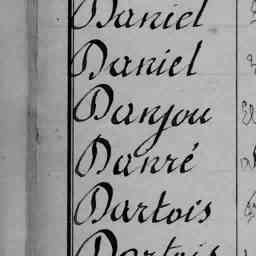 Daniel
Daniel
Danjou
Danré
Dartois
Dartois